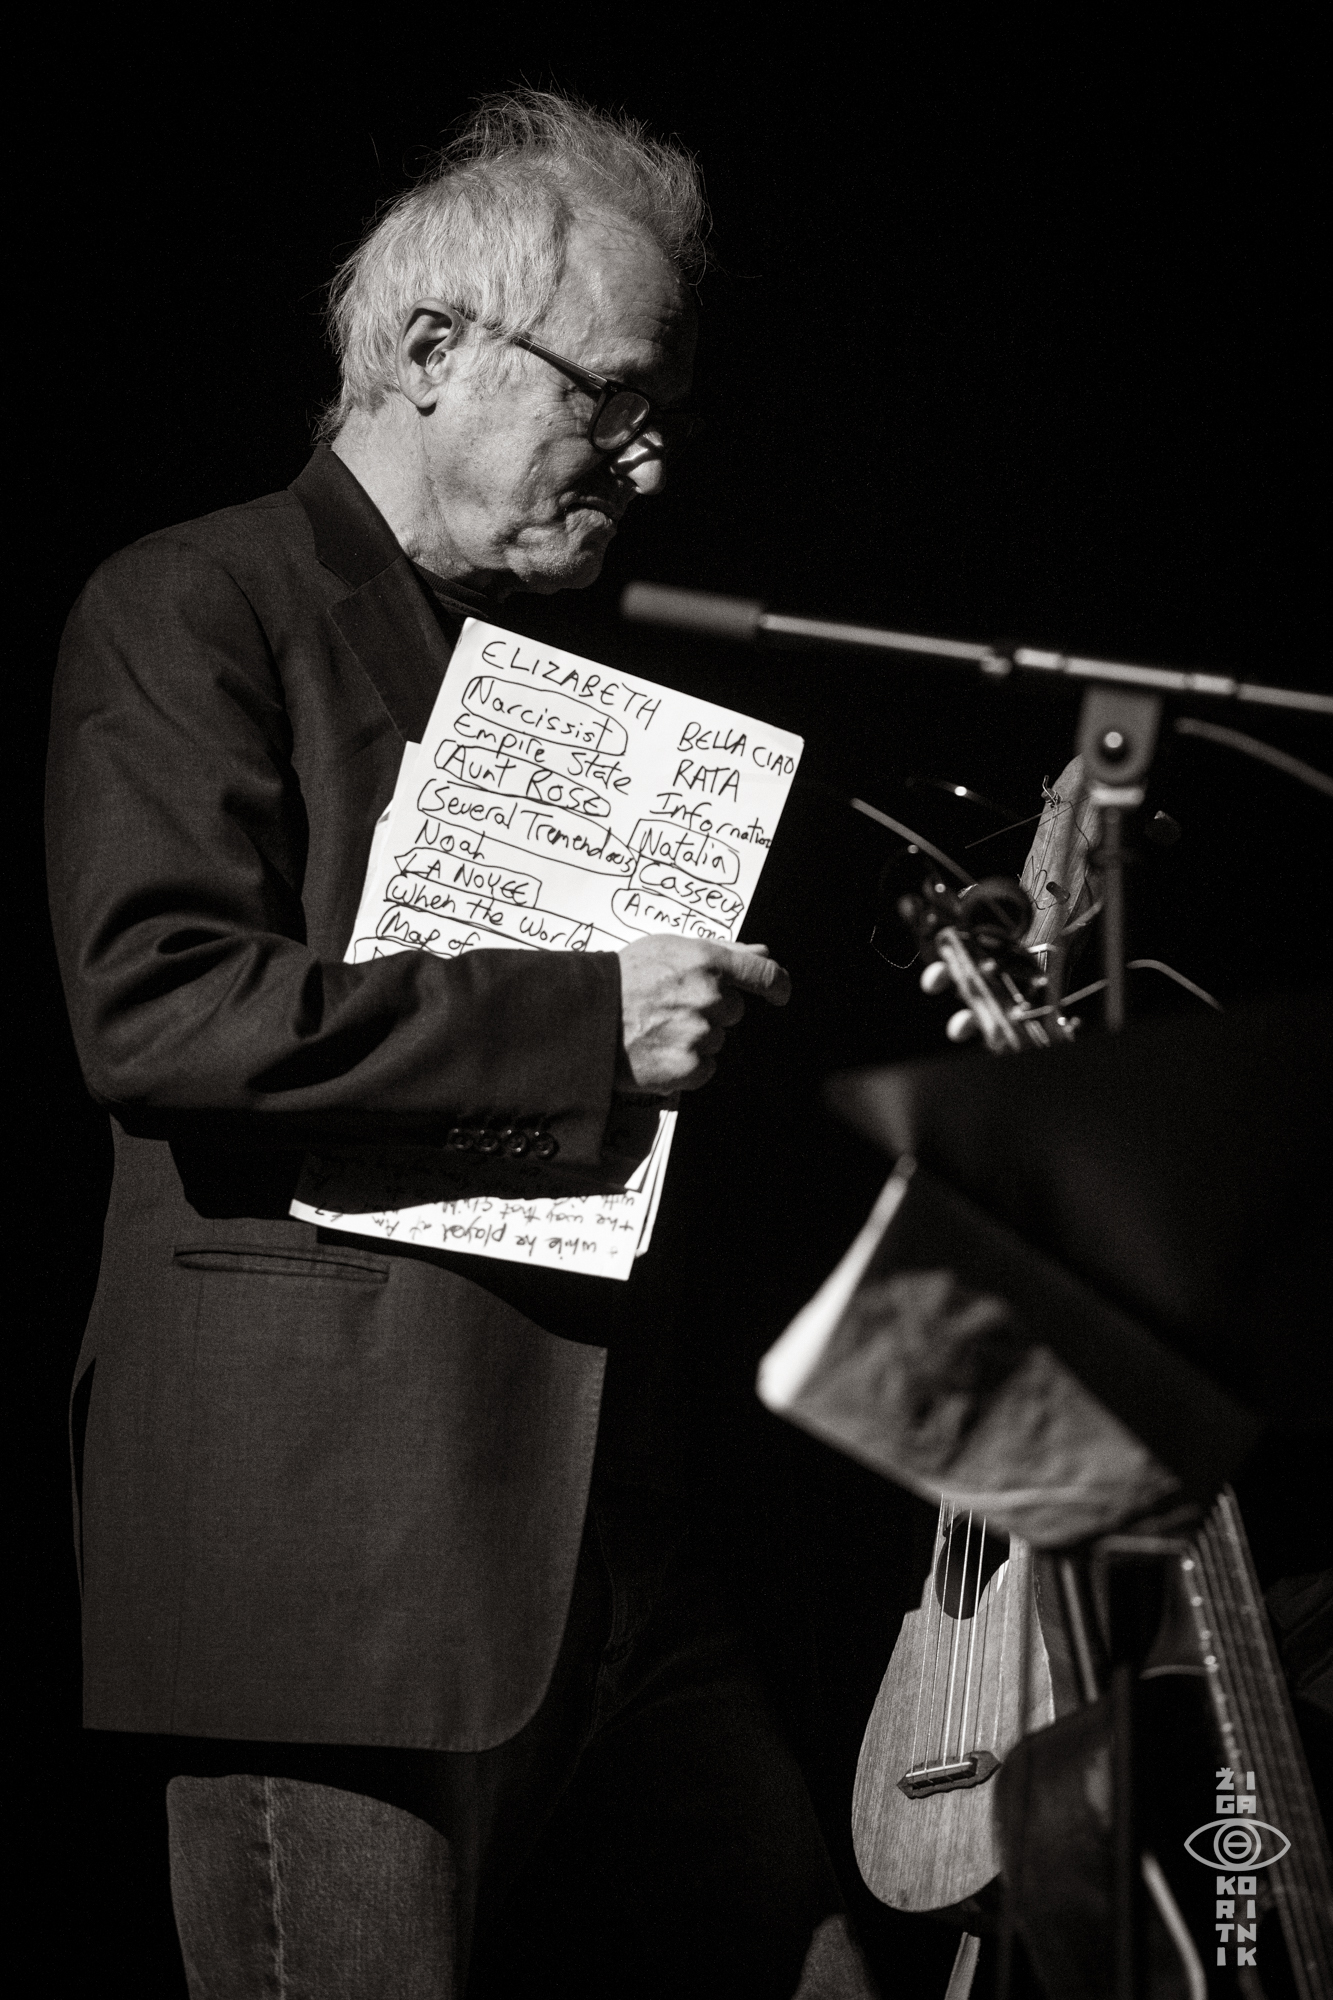 ELIZABETH
Narcissist
Empire State
Aunt Rose
Several Tremendous
Noah
LA NOYEE
When the World
Map of
BELLA CIAO
RATA
Information
Natalia
Casseus
Armstrong
+ while he played at
the way that
with
ŽIGA
KORITNIK